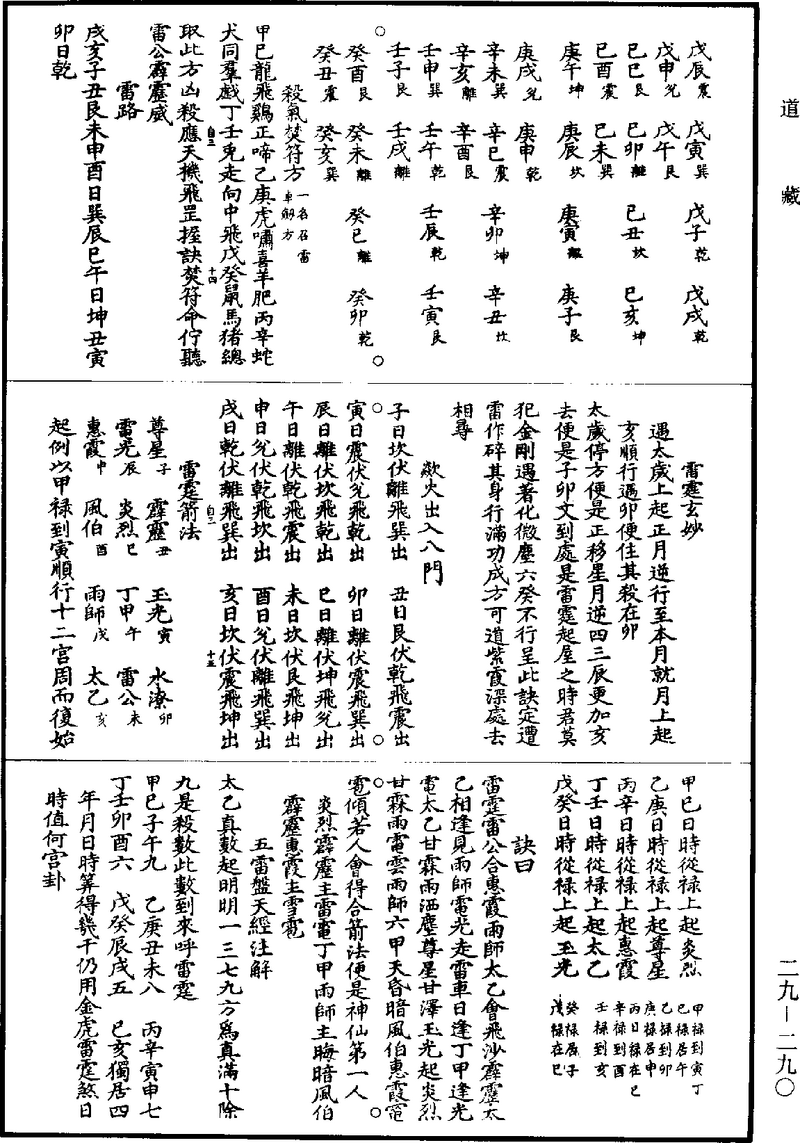 道藏
戊辰震 戊寅巽 戊子乾 戊戌乾
戊申兌 戊午艮
己巳艮 己卯離 己丑坎 己亥坤
己酉震 己未巽
庚午坤 庚辰坎 庚寅離 庚子艮
庚戌兌 庚申乾
辛未巽 辛巳震 辛卯坤 辛丑坎
辛亥離 辛酉艮
壬申巽 壬午乾 壬辰乾 壬寅艮
壬子艮 壬戌離
癸酉艮 癸未離 癸巳離 癸卯乾
癸丑震 癸亥巽
殺氣焚符方 一名召雷
甲己龍飛鷄正啼乙庚虎嘯喜羊肥丙辛蛇
犬同羣戲丁壬兎走向中飛戊癸鼠馬猪總
取此方凶殺應天機飛罡握訣焚符命佇聽
雷公霹靂威
雷路
戌亥子丑艮未申酉日巽辰巳午日坤丑寅
卯日乾
雷霆玄妙
遇太歲上起正月逆行至本月就月上起
亥順行遇卯便住其殺在卯
太歲停方便是正移星月逆四三辰更加亥
去便是子卯文到處是雷霆起屋之時君莫
犯金剛遇著化微塵六癸不行呈此訣定遭
雷作碎其身行滿功成方可道紫霞深處去
相尋
欻火出入八門
子日坎伏離飛巽出 丑日艮伏乾飛震出
寅日震伏兌飛乾出 卯日離伏震飛巽出
辰日離伏坎飛乾出 巳日離伏坤飛兌出
午日離伏乾飛震出 未日坎伏艮飛坤出
申日兌伏乾飛坎出 酉日兌伏離飛巽出
戌日乾伏離飛巽出 亥日坎伏震飛坤出
雷霆箭法
尊星子 霹靂丑 玉光寅 水潦卯
雷光辰 炎烈巳 丁甲午 雷公未
惠霞申 風伯酉 雨師戌 太乙亥
起例以甲祿到寅順行十二宮周而復始
甲己日時從祿上起炎烈
乙庚日時從祿上起尊星
丙辛日時從祿上起惠霞
丁壬日時從祿上起太乙
戊癸日時從祿上起玉光
甲祿到寅丁
己祿居午
乙祿到卯
庚祿居申
丙日祿在巳
辛祿到酉
壬祿到亥
癸祿居子
戊祿在巳
訣曰
雷霆雷公合惠霞雨師太乙會飛沙霹靂太
乙相逢見雨師電光走雷車日逢丁甲逢光
電太乙甘霖雨洒塵尊星甘澤玉光起炎烈
甘霖雨電雲雨師六甲天昏暗風伯惠霞雹
雹傾若人會得合箭法便是神仙第一人
炎烈霹靂主雷電丁甲雨師主晦暗風伯
霹靂惠霞主雪雹
五雷盤天經注解
太乙真數起明明一三七九方爲真滿十除
九是殺數此數到來呼雷霆
甲己子午九 乙庚丑未八 丙辛寅申七
丁壬卯酉六 戊癸辰戌五 巳亥獨居四
年月日時筭得幾干仍用金虎雷霆煞日
時值何宮卦
二九—二九〇